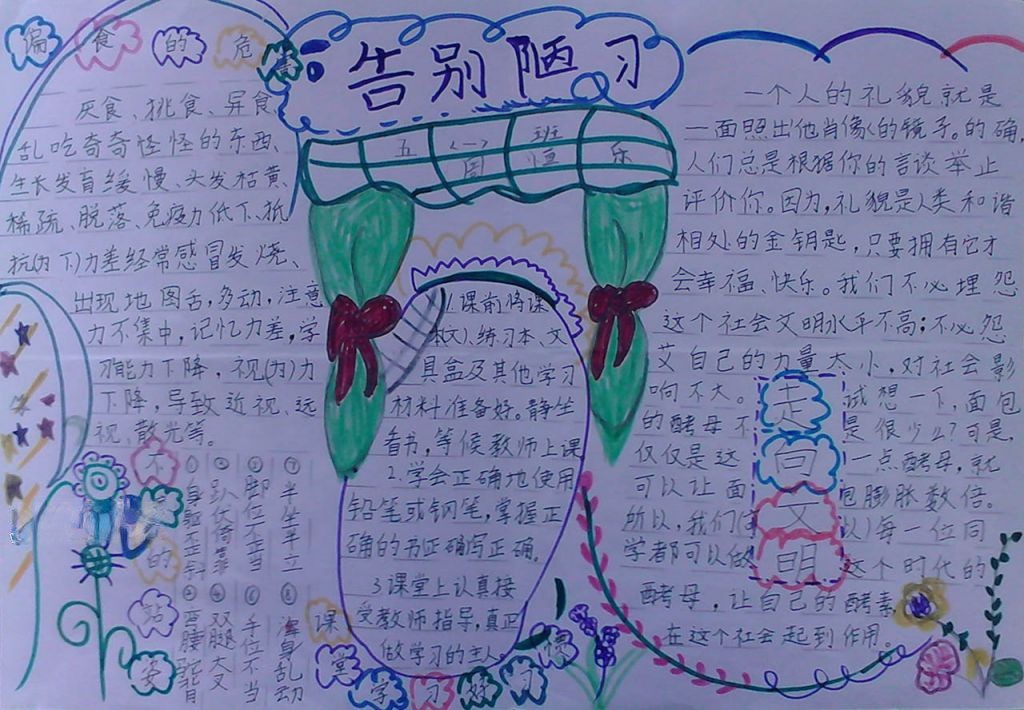 告别陋习
五<一>班
周恒乐
偏食的危害
厌食、挑食、异食
乱吃奇奇怪怪的东西、
生长发育缓慢、头发枯黄
稀疏、脱落、免疫力低下、抵
抗(力下)力差经常感冒发烧、
出现地图舌,多动,注意
力不集中,记忆力差,学
习能力下降,视(力)力
下降,导致近视、远
视、散光等。
不良的站姿
①身躯歪斜
②趴伏倚靠
③脚位不当
⑦半坐半立
④弯腰驼背
⑤双腿大叉
⑥手位不当
⑧浑身乱动
1.课前将课
本、练习本、文
具盒及其他学习
材料准备好。静坐
看书,等候教师上课
2.学会正确地使用
铅笔或钢笔,掌握正
确的书写正确。
3课堂上认真接
受教师指导,真正
做学习的主人
课堂学习好习惯
一个人的礼貌就是
一面照出他肖像的镜子。的确
人们总是根据你的言谈举止
评价你。因为,礼貌是人类和谐
相处的金钥匙,只要拥有它才
会幸福、快乐。我们不必埋怨
这个社会文明水平不高;不必怨
艾自己的力量太小,对社会影
响不大。试想一下,面包
的酵母不是很少么?可是,
仅仅是这一点酵母,就
可以让面包膨胀数倍。
所以,我们以每一位同
学都可以做这个时代的
酵母,让自己的酵素
在这个社会起到作用。
走向文明